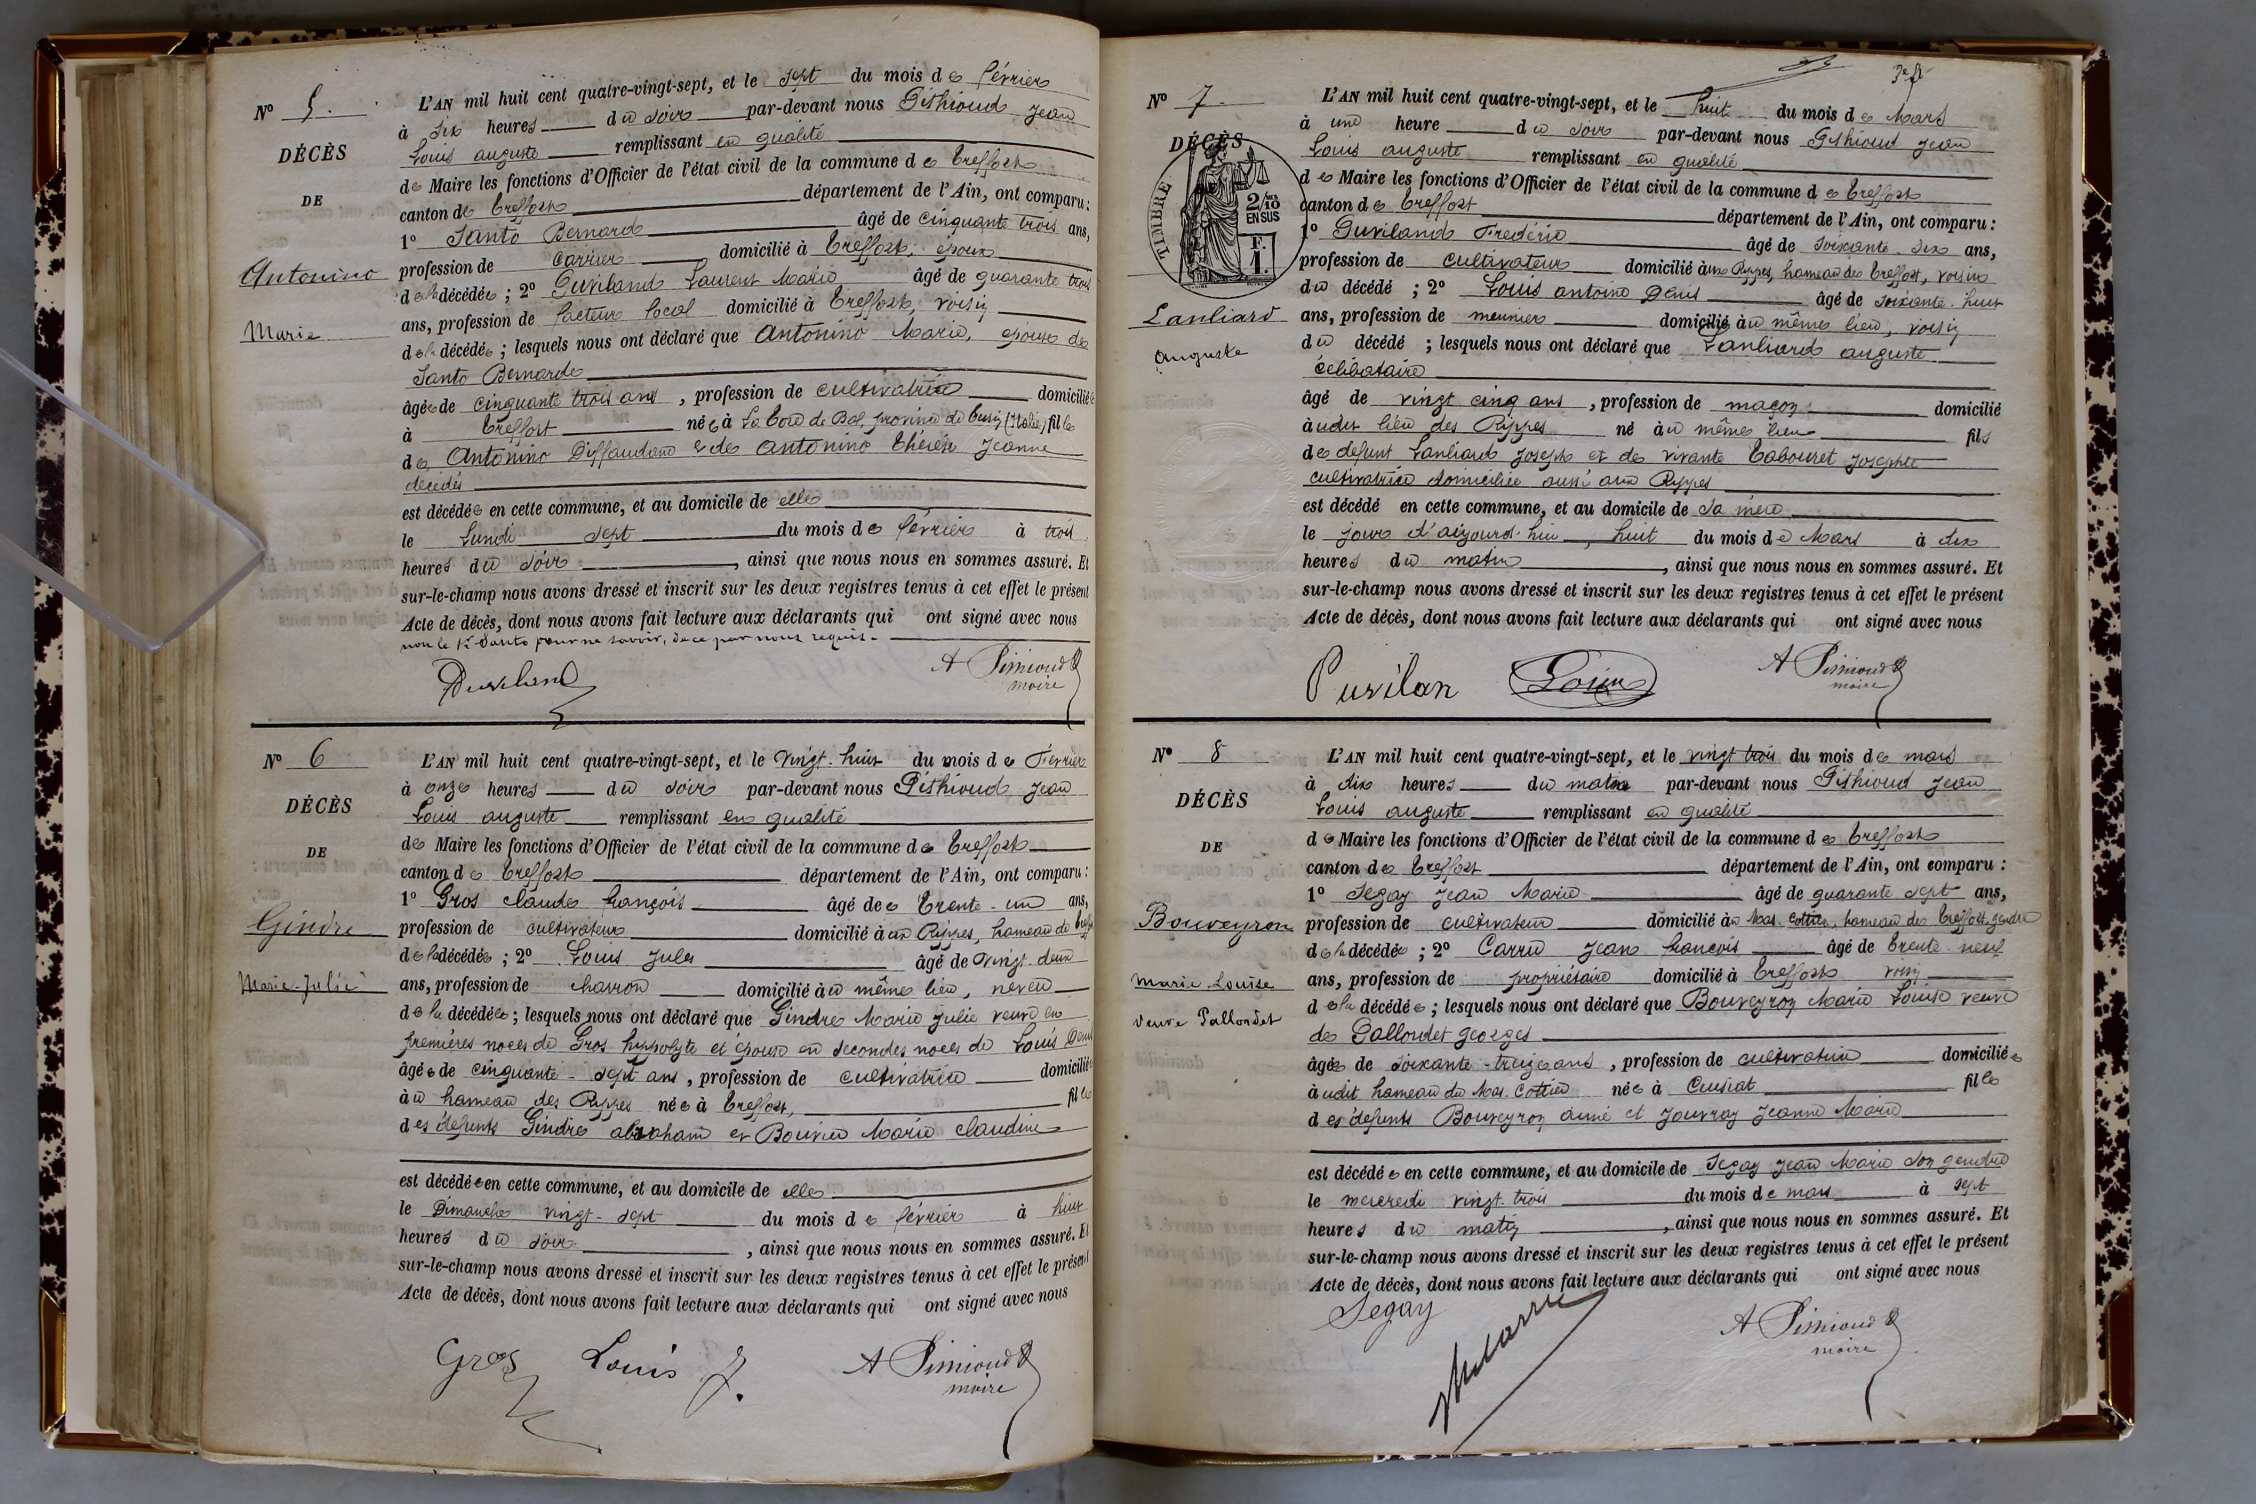 N° 5.
DÉCÈS
DE
Antonino
Marie
L'AN mil huit cent quatre-vingt-sept, et le sept du mois de février
à six heures du soir par-devant nous Pithioud Jean
Louis auguste remplissant en qualité
de Maire les fonctions d'Officier de l'état civil de la commune de Treffort
canton de Treffort département de l'Ain, ont comparu :
1° Santo Bernard âgé de cinquante trois ans,
profession de carrier domicilié à Treffort, époux
de la décédée ; 2° Puvilland Laurent Marie âgé de quarante trois
ans, profession de facteur local domicilié à Treffort, voisin
de la décédée ; lesquels nous ont déclaré que Antonino Marie, épouse de
Santo Bernard
âgée de cinquante trois ans, profession de cultivatrice domiciliée
à Treffort née à La Tour de Bol, province de Turin (Italie) fille
de Antonino Diffaudano et de Antonino Thérèse Jeanne
décédés
est décédée en cette commune, et au domicile de elle
le Lundi sept du mois de février à trois
heures du soir, ainsi que nous nous en sommes assuré. Et
sur-le-champ nous avons dressé et inscrit sur les deux registres tenus à cet effet le présent
Acte de décès, dont nous avons fait lecture aux déclarants qui ont signé avec nous
non le 1er Santo pour ne savoir, de ce par nous requis.
Puviland A Pithioud
maire
N° 6
DÉCÈS
DE
Gindre
Marie-Julie
L'AN mil huit cent quatre-vingt-sept, et le vingt-huit du mois de Février
à onze heures du soir par-devant nous Pithioud Jean
Louis auguste remplissant en qualité
de Maire les fonctions d'Officier de l'état civil de la commune de Treffort
canton de Treffort département de l'Ain, ont comparu :
1° Gros claude françois âgé de Trente-un ans,
profession de cultivateur domicilié aux Rippes, hameau de Treffort
de la décédée ; 2° Louis Jules âgé de vingt-deux
ans, profession de charron domicilié au même lieu, neveu
de la décédée ; lesquels nous ont déclaré que Gindre Marie Julie veuve en
premières noces de Gros hyppolyte et épouse en secondes noces de Louis Denis
âgée de cinquante-sept ans, profession de cultivatrice domiciliée
au hameau des Rippes née à Treffort, fille
des défunts Gindre abraham et Bouvier Marie claudine
est décédée en cette commune, et au domicile de elle
le Dimanche vingt-sept du mois de février à huit
heures du soir, ainsi que nous nous en sommes assuré. Et
sur-le-champ nous avons dressé et inscrit sur les deux registres tenus à cet effet le présent
Acte de décès, dont nous avons fait lecture aux déclarants qui ont signé avec nous
Gros Louis J. A Pithioud
maire
N° 7
DÉCÈS
TIMBRE
2/10
EN SUS
F.
1.
Lanliard
Auguste
L'AN mil huit cent quatre-vingt-sept, et le huit du mois de Mars
à une heure du soir par-devant nous Pithioud Jean
Louis auguste remplissant en qualité
de Maire les fonctions d'Officier de l'état civil de la commune de Treffort
canton de Treffort département de l'Ain, ont comparu :
1° Puviland Frédéric âgé de soixante-six ans,
profession de cultivateur domicilié aux Rippes, hameau de Treffort, voisin
du décédé ; 2° Louis antoine Denis âgé de soixante-huit
ans, profession de meunier domicilié au même lieu, voisin
du décédé ; lesquels nous ont déclaré que Lanliard auguste
célibataire
âgé de vingt cinq ans, profession de maçon domicilié
audit lieu des Rippes né au même lieu fils
de défunt Lanliard Joseph et de vivante Tabouret Josephte
cultivatrice domiciliée aussi aux Rippes
est décédé en cette commune, et au domicile de sa mère
le jour d'aujourd'hui, huit du mois de Mars à dix
heures du matin, ainsi que nous nous en sommes assuré. Et
sur-le-champ nous avons dressé et inscrit sur les deux registres tenus à cet effet le présent
Acte de décès, dont nous avons fait lecture aux déclarants qui ont signé avec nous
Puvilan Louis A Pithioud
maire
N° 8
DÉCÈS
DE
Bouveyron
Marie Louise
veuve Pallondet
L'AN mil huit cent quatre-vingt-sept, et le vingt trois du mois de mars
à dix heures du matin par-devant nous Pithioud Jean
Louis auguste remplissant en qualité
de Maire les fonctions d'Officier de l'état civil de la commune de Treffort
canton de Treffort département de l'Ain, ont comparu :
1° Segay Jean Marie âgé de quarante sept ans,
profession de cultivateur domicilié au Mas-Cottier, hameau de Treffort, gendre
de la décédée ; 2° Carru Jean françois âgé de trente-neuf
ans, profession de propriétaire domicilié à Treffort voisin
de la décédée ; lesquels nous ont déclaré que Bouveyron Marie Louise veuve
de Palloudet georges
âgée de soixante-treize ans, profession de cultivatrice domiciliée
audit hameau du Mas-Cottier née à Cuisiat fille
des défunts Bouveyron aimé et Jouvray Jeanne Marie
est décédée en cette commune, et au domicile de Segay Jean Marie son gendre
le mercredi vingt-trois du mois de mars à sept
heures du matin, ainsi que nous nous en sommes assuré. Et
sur-le-champ nous avons dressé et inscrit sur les deux registres tenus à cet effet le présent
Acte de décès, dont nous avons fait lecture aux déclarants qui ont signé avec nous
Segay A Pithioud
maire